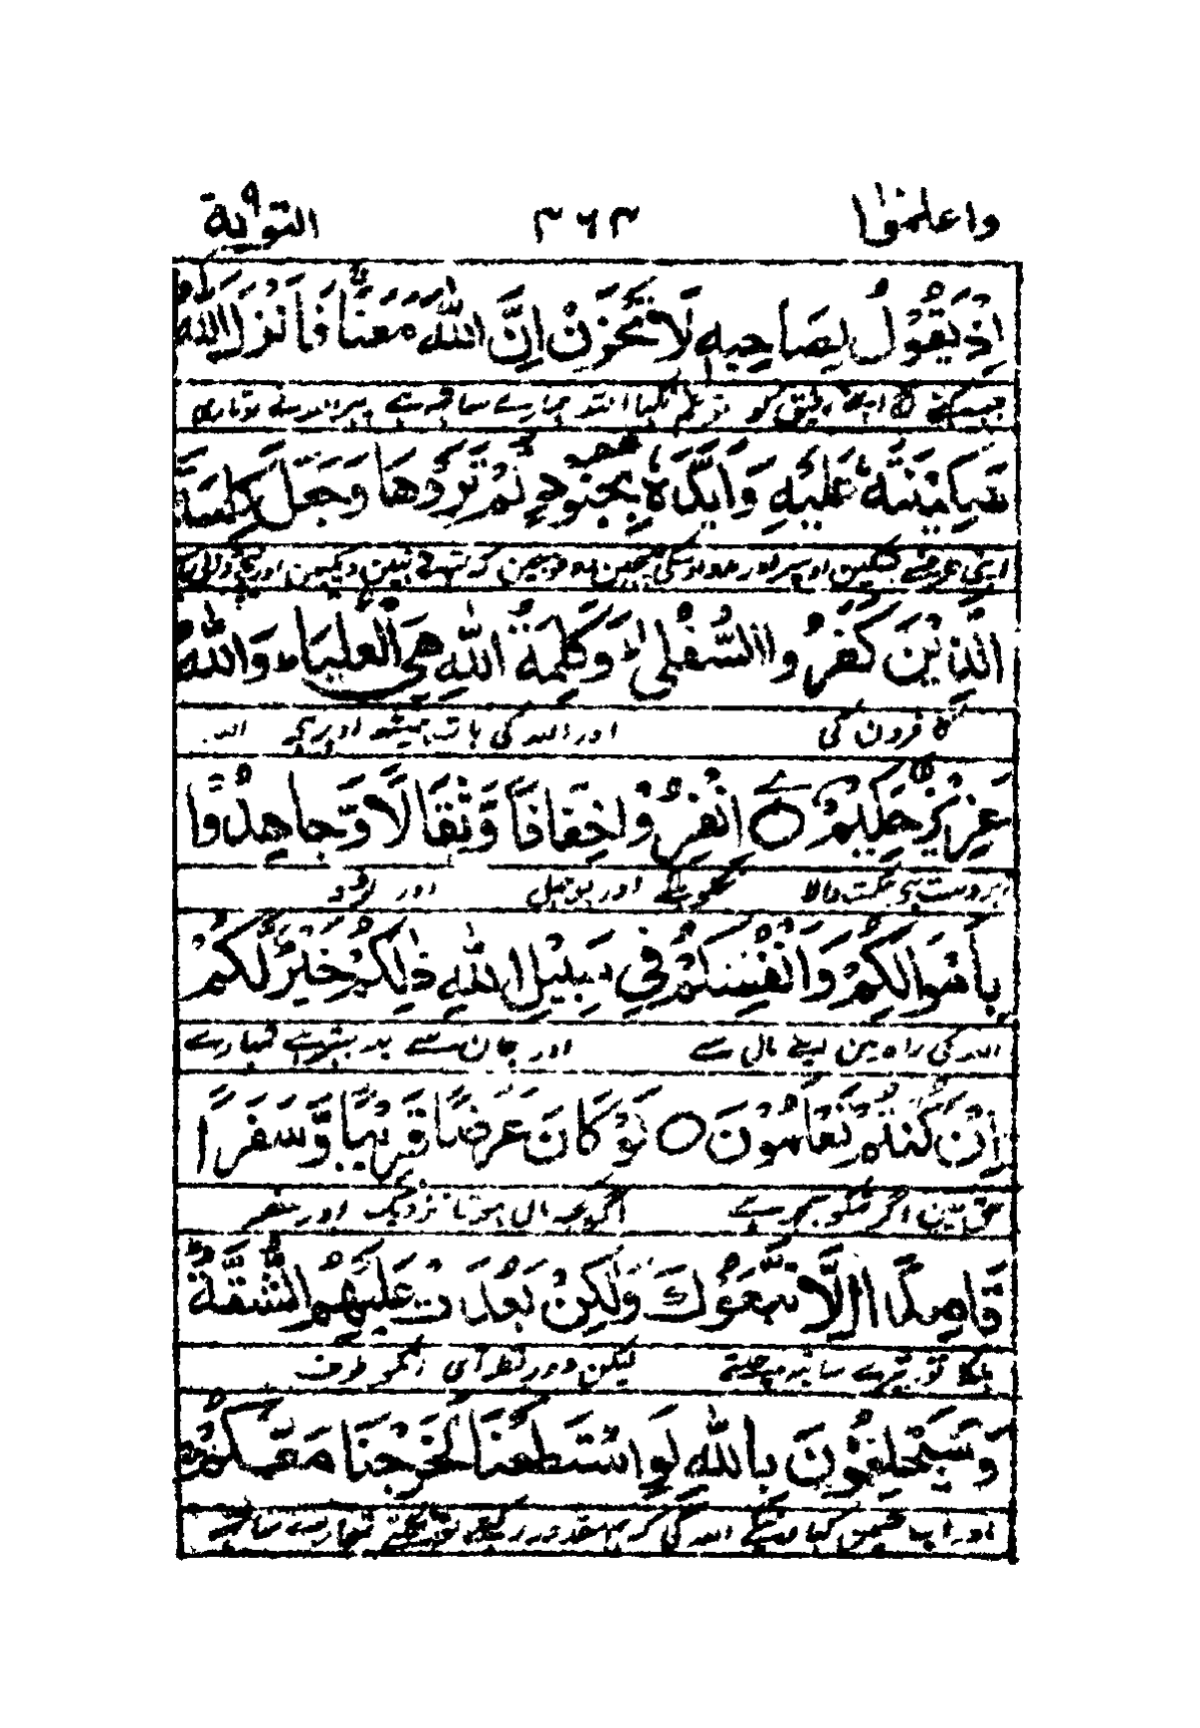 واعلموا ٣٦٣ التوبة ٩
اِذْ يَقُوْلُ لِصَاحِبِهٖ لَا تَحْزَنْ اِنَّ اللّٰهَ مَعَنَا فَاَنْزَلَ اللّٰهُ
جب کہنے لگا اپنے رفیق کو تو غم نکہا اللہ ہمارے ساتھ ہے پھر اللہ نے اوتاری
سَكِيْنَتَهٗ عَلَيْهِ وَاَيَّدَهٗ بِجُنُوْدٍ لَّمْ تَرَوْهَا وَجَعَلَ كَلِمَةَ
اپنی طرف سے تسکین اوسپر اور مدد اوسکی بھیجین وہ فوجین کہ تمنے نہین دیکھین اور نیچے ڈالی بات
الَّذِيْنَ كَفَرُوا السُّفْلٰى ط وَكَلِمَةُ اللّٰهِ هِيَ الْعُلْيَا ط وَاللّٰهُ
کافرون کی اور اللہ کی بات ہمیشہ اوپر ہے اللہ
عَزِيْزٌ حَكِيْمٌ ○ اِنْفِرُوْا خِفَافًا وَّثِقَالًا وَّجَاهِدُوْا
زبردست ہے حکمت والا نکلو ہلکے اور بوجھل اور لڑو
بِاَمْوَالِكُمْ وَاَنْفُسِكُمْ فِيْ سَبِيْلِ اللّٰهِ ذٰلِكُمْ خَيْرٌ لَّكُمْ
اللہ کی راہ مین اپنے مال سے اور جان سے یہ بہتر ہے تمہارے
اِنْ كُنْتُمْ تَعْلَمُوْنَ ○ لَوْ كَانَ عَرَضًا قَرِيْبًا وَّسَفَرًا
حق مین اگر تمکو سمجھ ہے اگر کچھ مال ہوتا نزدیک اور سفر
قَاصِدًا لَّاتَّبَعُوْكَ وَلٰكِنْ بَعُدَتْ عَلَيْهِمُ الشُّقَّةُ ط
ہلکا تو تیرے ساتھ چلتے لیکن دور نظر آئی انکو طرف
وَسَيَحْلِفُوْنَ بِاللّٰهِ لَوِ اسْتَطَعْنَا لَخَرَجْنَا مَعَكُمْ
اور اب قسمین کھاوینگے اللہ کی کہ ہم مقدور رکھتے تو نکلتے تمہارے ساتھ